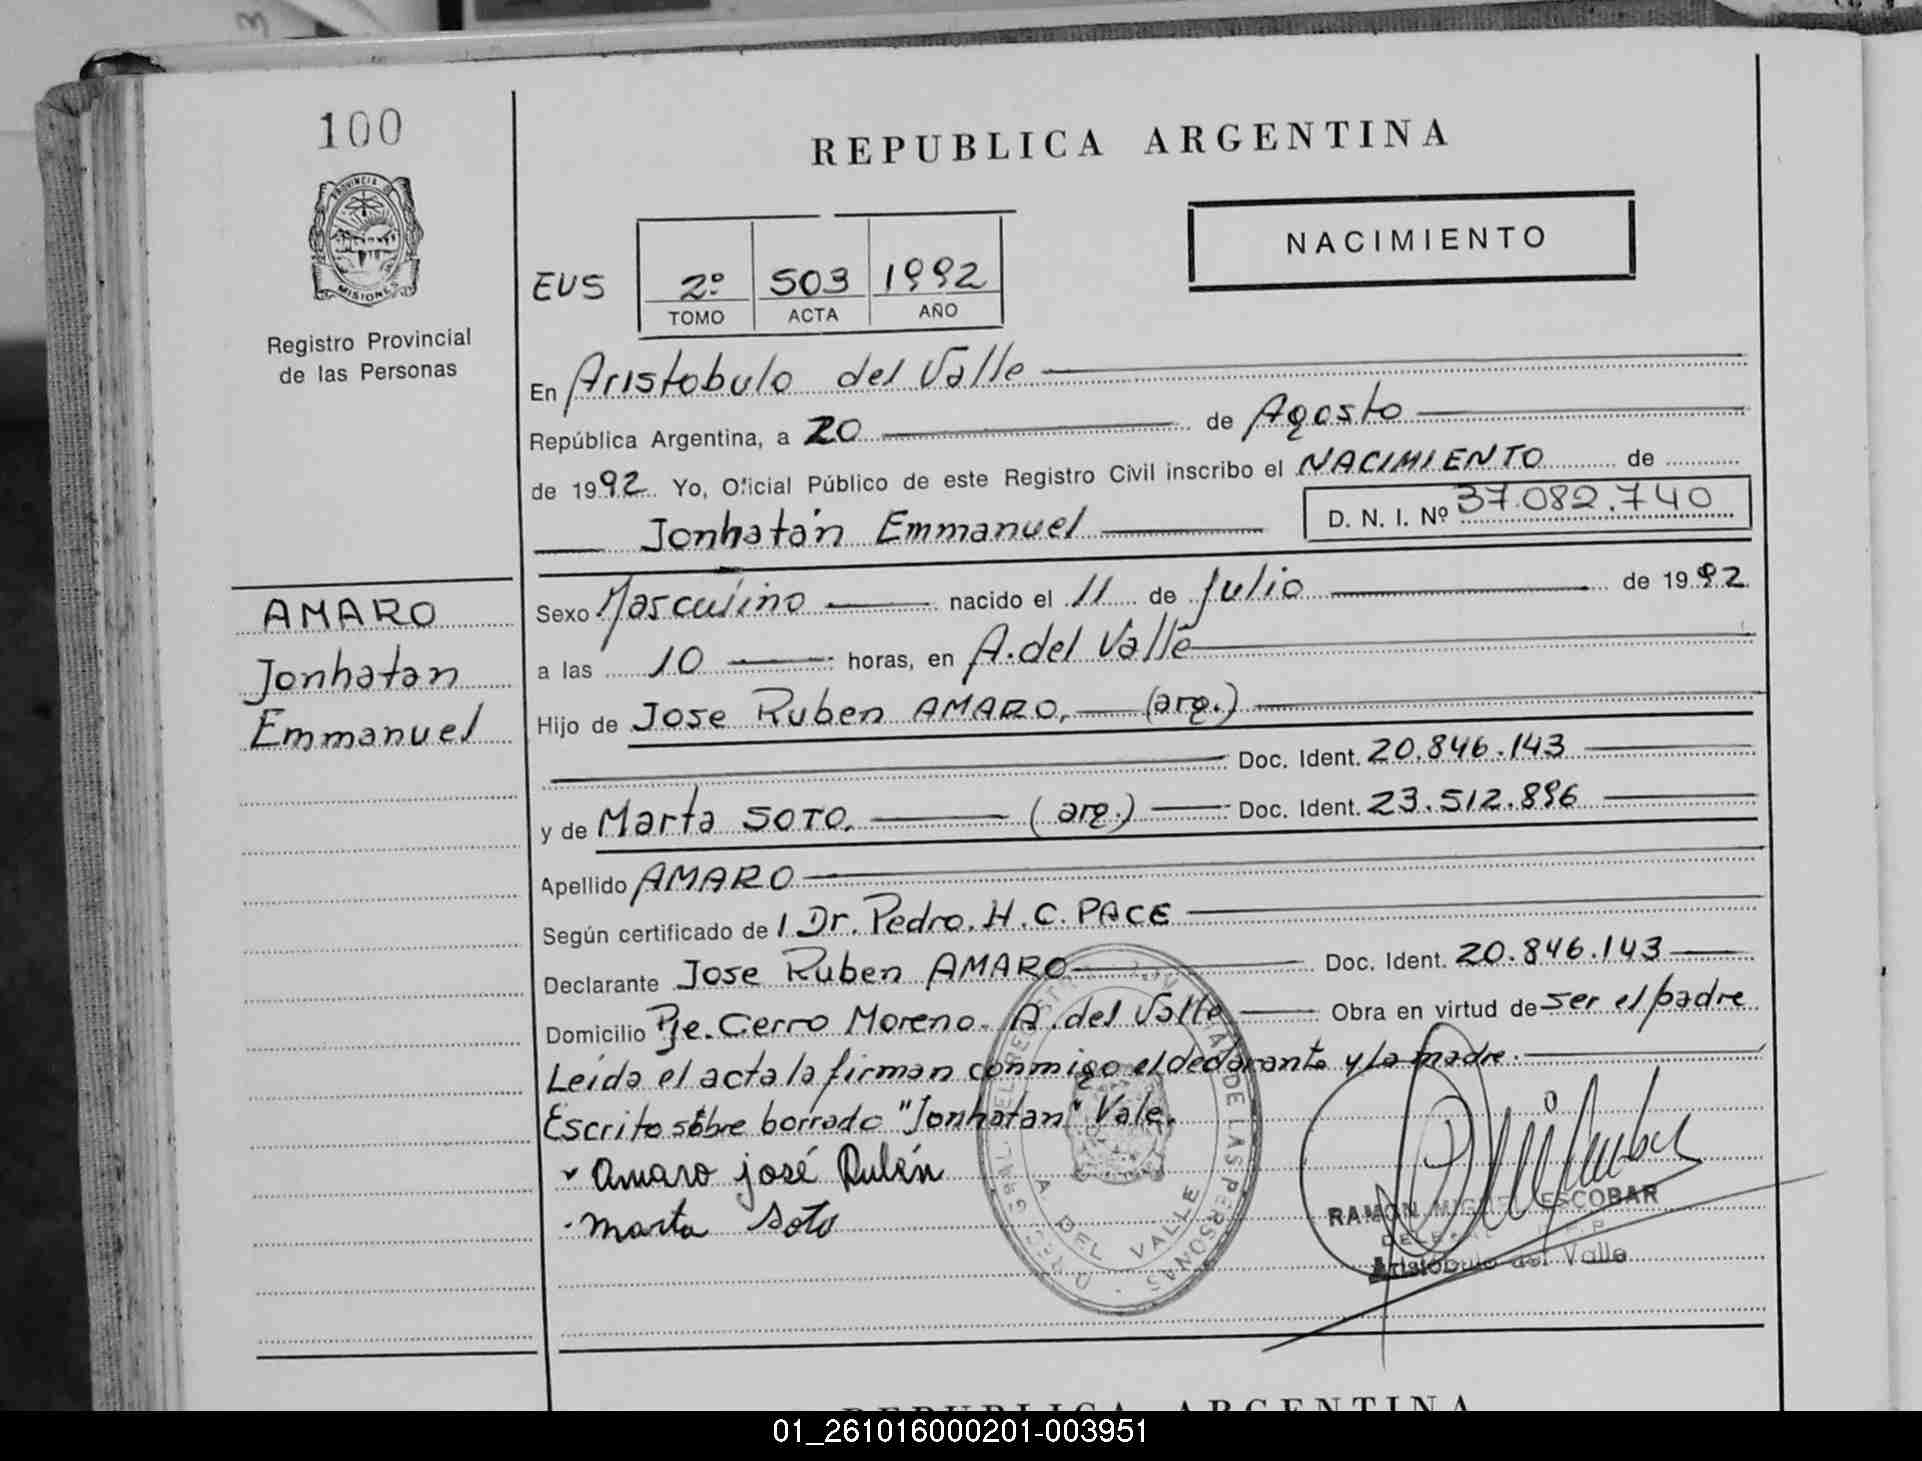 100
PROVINCIA DE
MISIONES
Registro Provincial
de las Personas
REPUBLICA ARGENTINA
NACIMIENTO
EUS 2º 503 1992
TOMO ACTA AÑO
En Aristobulo del Valle
República Argentina, a 20 de Agosto
de 1992 Yo, Oficial Público de este Registro Civil inscribo el NACIMIENTO de
Jonhatán Emmanuel D. N. I. Nº 37.082.740
AMARO
Jonhatan
Emmanuel
Sexo Masculino nacido el 11 de Julio de 1992
a las 10 horas, en A. del Valle
Hijo de Jose Ruben AMARO, (arg.)
Doc. Ident. 20.846.143
y de Marta SOTO, (arg.) Doc. Ident. 23.512.896
Apellido AMARO
Según certificado de l Dr. Pedro. H. C. PACE
Declarante Jose Ruben AMARO Doc. Ident. 20.846.143
Domicilio Pje. Cerro Moreno. A. del Valle Obra en virtud de ser el padre
Leída el acta la firman conmigo el declarante y la madre.
Escrito sobre borrado "Jonhatan" Vale.
Amaro josé Rubén
Marta Soto
DE LAS PERSONAS
A DEL VALLE
RAMON MIGUEL ESCOBAR
Aristóbulo del Valle
REPUBLICA ARGENTINA
01_261016000201-003951